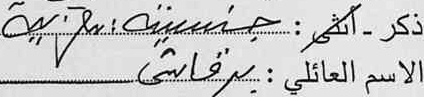 ذكر - أنثى : جنسيته : مغربية
الاسم العائلي : برقاشي